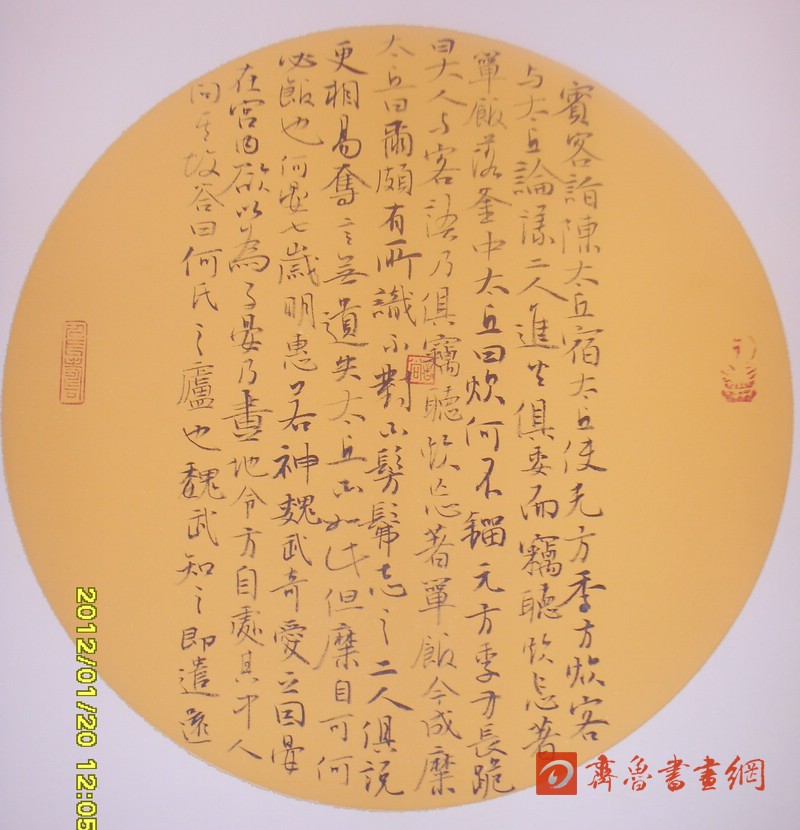 賓客詣陳太丘宿太丘使元方季方炊客
与太丘論議二人進火俱委而竊聽炊忘著
箄飯落釜中太丘曰炊何不餾元方季方長跪
曰大人与客語乃俱竊聽炊忘著箄飯今成糜
太丘曰爾頗有所識不對曰髣髴志之二人俱說
更相易奪言無遺失太丘曰如此但糜自可何
必飯也何晏七歲明惠若神魏武奇愛之因晏
在宮內欲以為子晏乃畫地令方自處其中人
問其故答曰何氏之廬也魏武知之即遣還
齊魯書畫網
2012/01/20 12:05